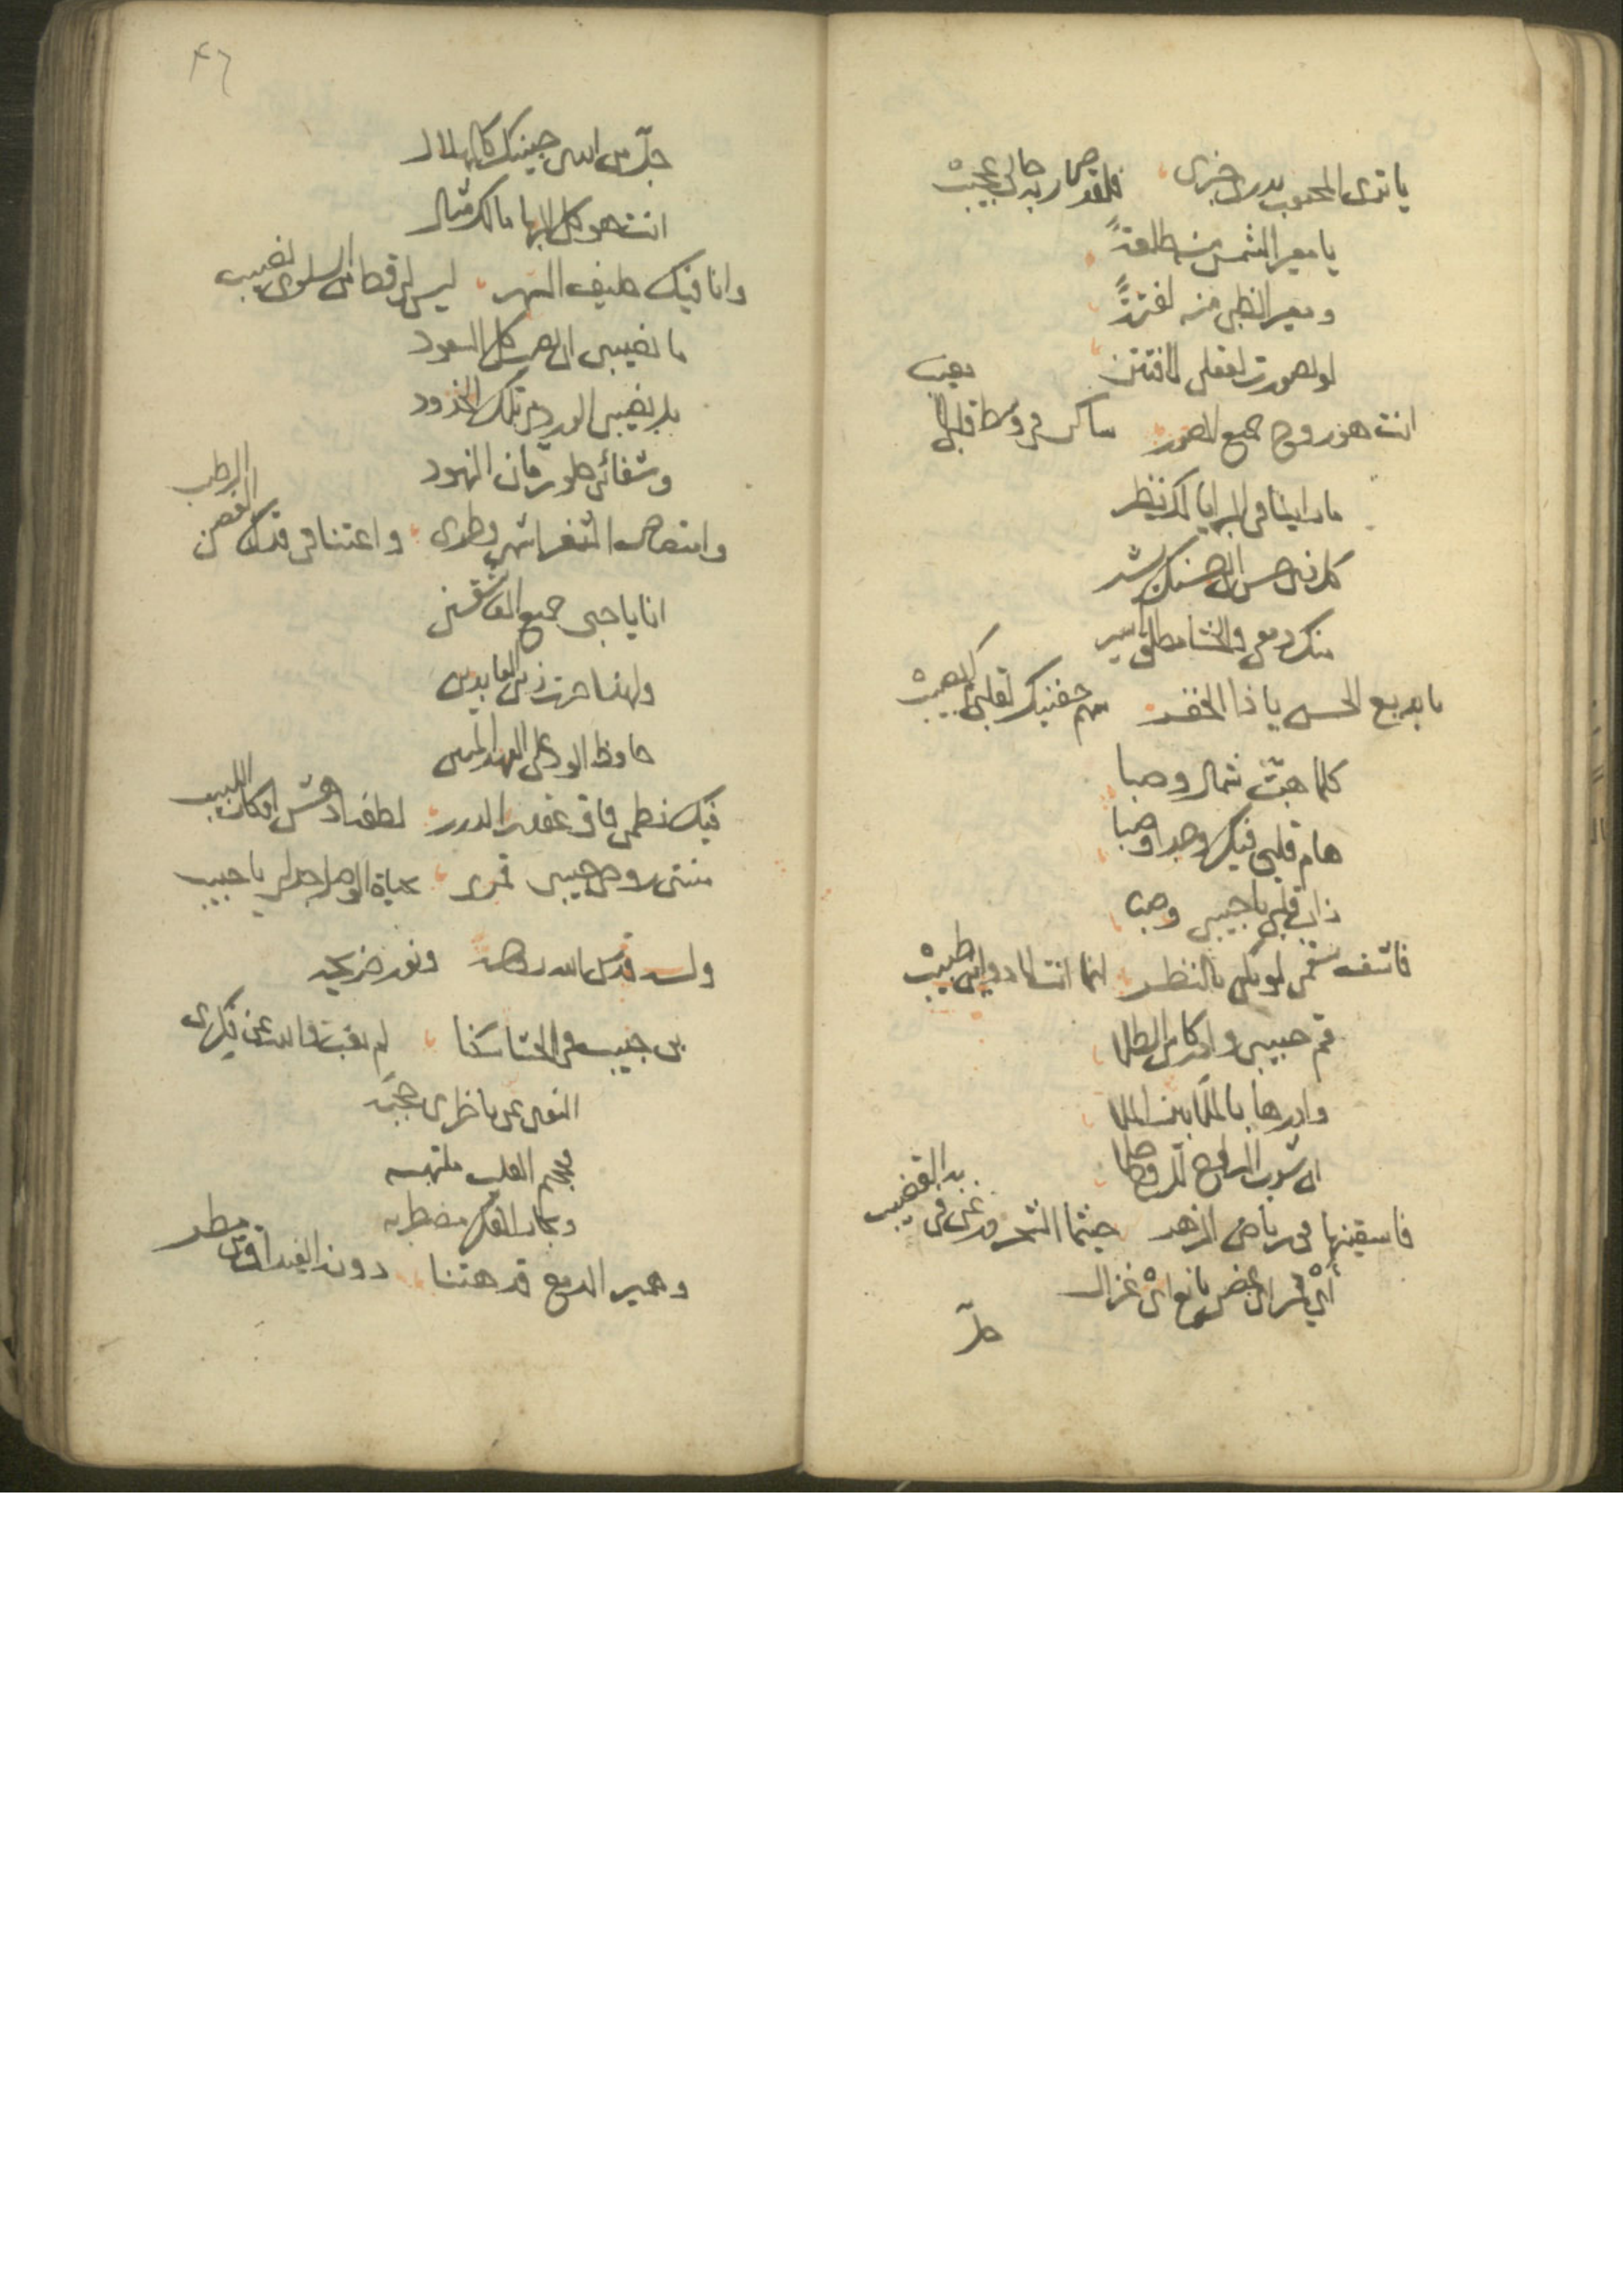 يا ترى المحبوب يدرى خبرى فلقد صار به حالى عجيب
يا معير الشمس منه طلعةً
ومعير الظبى منه لفتةً
لو تصورت لعقلى لافتتن
انت هو روح جميع الصور ساكن فى وسط قلبى
ما راينا فى البرايا لك نظير
كل ذى حسن الى حسنك يشير
منك دمعى والحشا مطلق اسير
يا بديع الحسن يا ذا الخفر سهم جفنيك لقلبى كم يصيب
كلما هبت شمال وصبا
هام قلبى فيك وجدا وصبا
ذاب قلبى يا حبيبى وصبا
فاشف سقمى لو يكن بالنظر انما انت لادوائى طبيب
قم حبيبى وادر كاس الطلا
وادرها يا ملا بين الملا
ان شرب الراح للروح حلا
فاسقينها فى رياض الزهر حيثما الشحرور غنى فى القضيب
اى بدر اى غصن يانع اى غزال
جل
٤٦
جل من انشى جبينك كالهلال
انت هو كل البها مالك مثال
وانا فيك حليف السهر ليس لى قط من السلوى نصيب
ما نصيبى انت كل السعود
بل نصيبى الورد من تلك الخدود
وشفائى حلو رمان النهود
وامتصاص الثغر اشهى وطرى واعتناقى قدك الغصن الرطب
انا يا حبى جميع العاشقين
ولهذا صرت زين العابدين
حافظ الود على العهد المتين
فيك نظمى فاق عقد الدرر لطفه ادهش افكار اللبيب
منيتى روحى حبيبى قمرى بحياة الوصل جد لى يا حبيب
وله قدس الله روحه ونور ضريحه
من حبيب فى الحشا سكنا لم يغب والله عن فكرى
النوى عن ناظرى حجبه
وجحيم القلب ملتهبه
وبحار الفكر مضطربه
وهمير الدمع قد هتنا دونه الغيداق من مطر